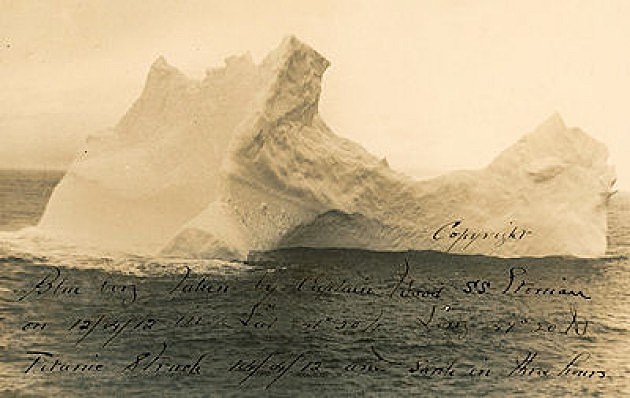 Copyright
Blue berg Taken by Captain Wood SS Etonian
on 12/04/12 Lat Long W
Titanic Struck 14/04/12 and sank in three hours.